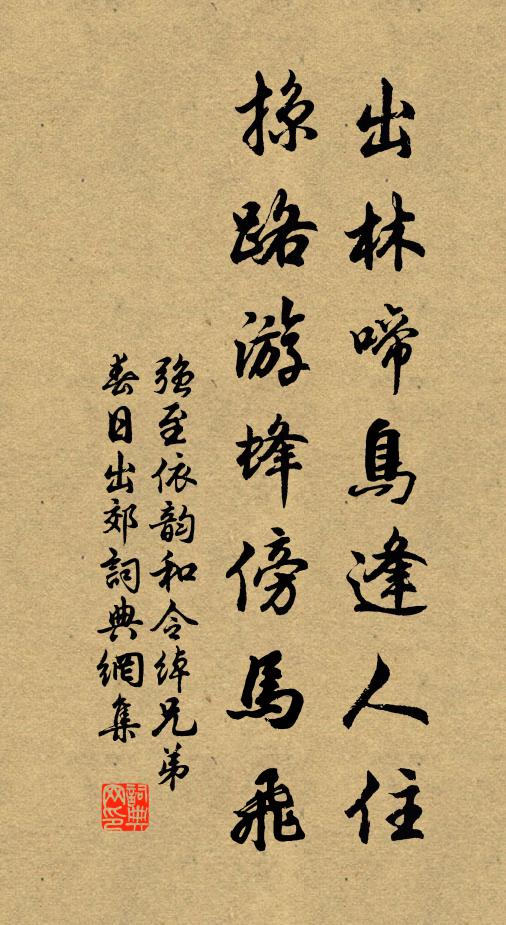 出林啼鳥逢人住
掠路游蜂傍馬飛
強至依韵和令綽兄弟
春日出郊詞典網集
詞典網印